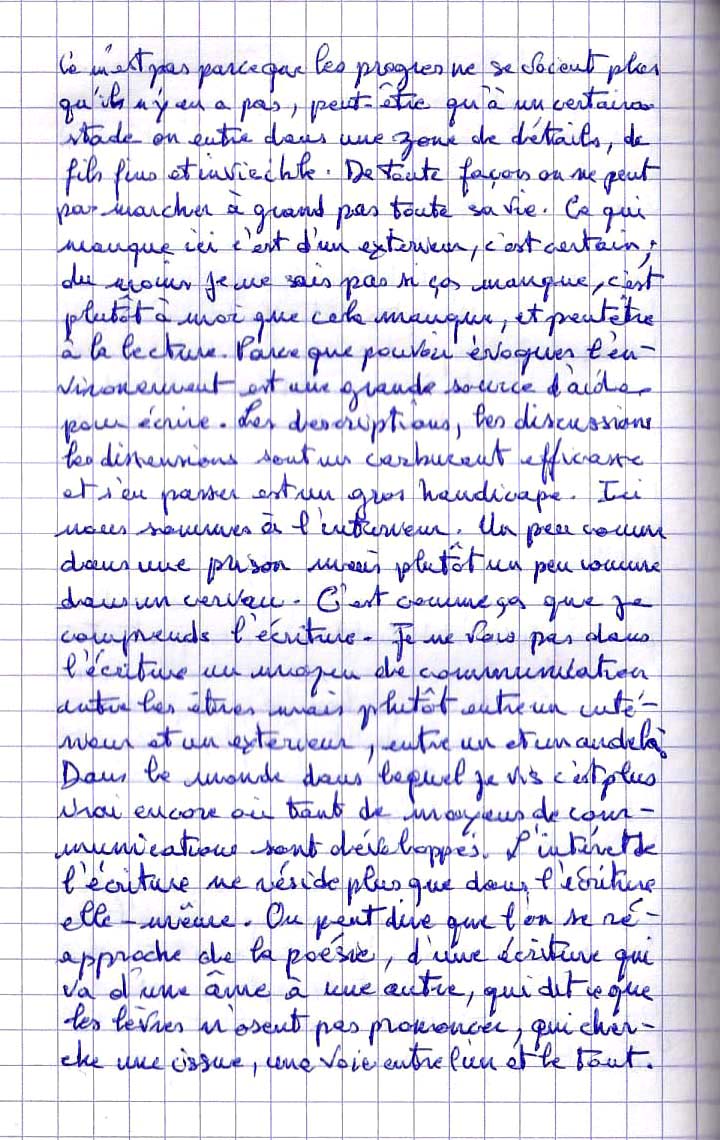 Ce n'est pas parce que les progres ne se voient plus
qu'ils n'y en a pas, peut-être qu'à un certains
stade on entre dans une zone de détails, de
fils fins et invisible. De toute façon on ne peut
pas marcher à grand pas toute sa vie. Ce qui
manque ici c'est d'un exterieur, c'est certain,
du moins je ne sais pas si ça manque, c'est
plutôt à moi que cela manque, et peut être
à la lecture. Parce que pouvoir évoquer l'en-
vironnement est une grande source d'aide
pour écrire. Les descriptions, les discussions
les dimensions sont un carburant efficasse
et s'en passer est un gros handicape. Ici
nous sommes à l'interieur. Un peu comme
dans une prison mais plutôt un peu comme
dans un cerveau. C'est comme ça que je
comprends l'écriture. Je ne vois pas dans
l'écriture un moyen de communication
entre les êtres mais plutôt entre un inté-
rieur et un exterieur, entre un et un audelà.
Dans le monde dans lequel je vis c'est plus
vrai encore où tant de moyens de com-
munications sont développés. L'intéret de
l'écriture ne réside plus que dans l'écriture
elle-même. On peut dire que l'on se ré-
approche de la poésie, d'une écriture qui
va d'une âme à une autre, qui dit ce que
les lèvres n'osent pas prononcer, qui cher-
che une issue, une voie entre l'un et le tout.